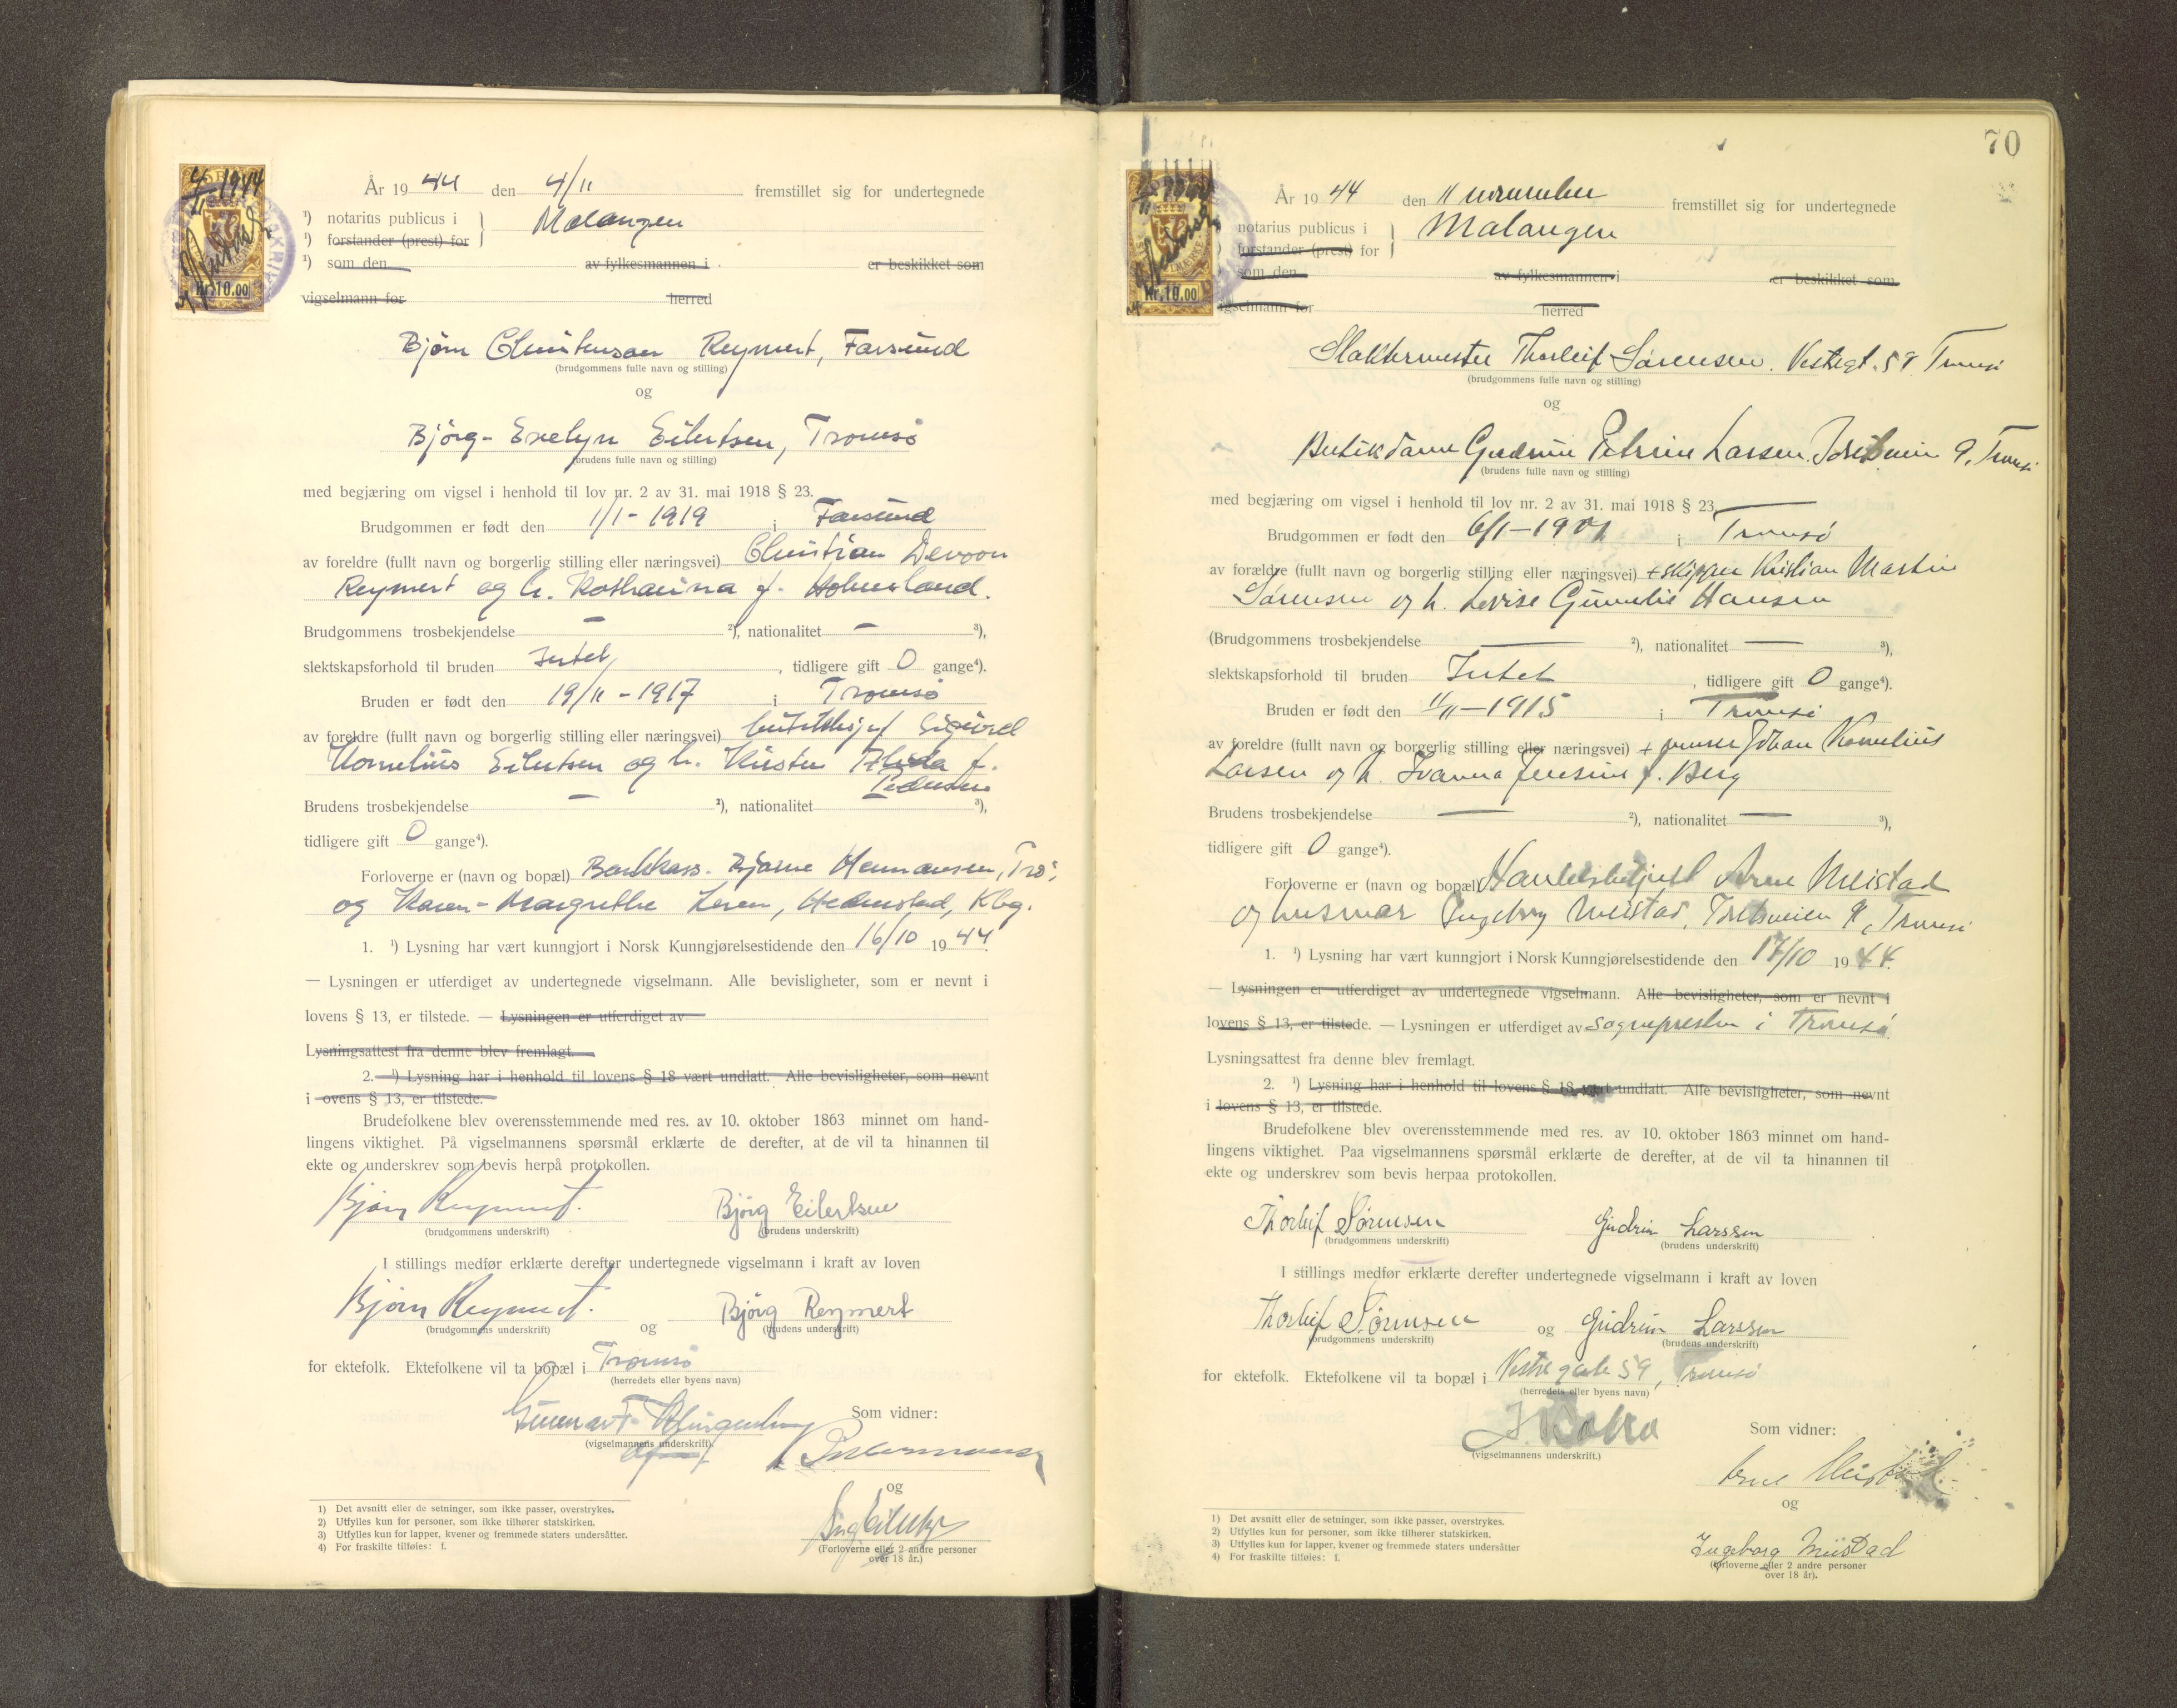 År 19 44 den 4/11 fremstillet sig for undertegnede
¹) notarius publicus i } Malangen
¹) forstander (prest) for
¹) som den av fylkesmannen i er beskikket som
vigselmann for herred
Kr. 10.00
Bjørn Christensen Reymert, Farsund
(brudgommens fulle navn og stilling)
og
Bjørg-Evelyn Eilertsen, Tromsø
(brudens fulle navn og stilling)
med begjæring om vigsel i henhold til lov nr. 2 av 31. mai 1918 § 23.
Brudgommen er født den 1/1-1919 i Farsund
av foreldre (fullt navn og borgerlig stilling eller næringsvei) Christian Devoon
Reymert og h. Katharina f. Holmesland.
Brudgommens trosbekjendelse — ²), nationalitet — ³),
slektskapsforhold til bruden Intet, tidligere gift 0 gange⁴).
Bruden er født den 19/11-1917 i Tromsø
av foreldre (fullt navn og borgerlig stilling eller næringsvei) Sigurd
Kornelius Eilertsen og h. Kirsten f.
Pedersen
Brudens trosbekjendelse — ²), nationalitet — ³),
tidligere gift 0 gange⁴).
Forloverne er (navn og bopæl) Bankkass. Bjarne Hermansen, Trø,
og Karen-Margrethe Kbg.
1. ¹) Lysning har vært kunngjort i Norsk Kunngjørelsestidende den 16/10 19 44.
— Lysningen er utferdiget av undertegnede vigselmann. Alle bevisligheter, som er nevnt i
lovens § 13, er tilstede. — Lysningen er utferdiget av
Lysningsattest fra denne blev fremlagt.
2. ¹) Lysning har i henhold til lovens § 18 vært undlatt. Alle bevisligheter, som nevnt
i ovens § 13, er tilstede.
Brudefolkene blev overensstemmende med res. av 10. oktober 1863 minnet om hand-
lingens viktighet. På vigselmannens spørsmål erklærte de derefter, at de vil ta hinannen til
ekte og underskrev som bevis herpå protokollen.
Bjørn Reymert. Bjørg Eilertsen
(brudgommens underskrift) (brudens underskrift)
I stillings medfør erklærte derefter undertegnede vigselmann i kraft av loven
Bjørn Reymert. og Bjørg Reymert
(brudgommens underskrift) (brudens underskrift)
for ektefolk. Ektefolkene vil ta bopæl i Tromsø
(herredets eller byens navn)
Gunnar F. Klingenberg Som vidner:
(vigselmannens underskrift).
og
(Forloverne eller 2 andre personer
over 18 år.)
1) Det avsnitt eller de setninger, som ikke passer, overstrykes.
2) Utfylles kun for personer, som ikke tilhører statskirken.
3) Utfylles kun for lapper, kvener og fremmede staters undersåtter.
4) For fraskilte tilføies: f.
70
År 19 44 den 11 november fremstillet sig for undertegnede
notarius publicus i } Malangen
) forstander (prest) for
som den av fylkesmannen i er beskikket som
igselmann for herred
Kr. 10.00
Slaktermester Thorleif Sørensen. Vestregt. 59 Tromsø
(brudgommens fulle navn og stilling)
og
Butikdame Gudrun Petrine Larsen. 9, Tromsø
(brudens fulle navn og stilling)
med begjæring om vigsel i henhold til lov nr. 2 av 31. mai 1918 § 23.
Brudgommen er født den 6/1-1901 i Tromsø
av forældre (fullt navn og borgerlig stilling eller næringsvei) + skipper Kristian Martin
Sørensen og h. Lovise Gunnelie Hansen
(Brudgommens trosbekjendelse — ²), nationalitet — ³),
slektskapsforhold til bruden Intet, tidligere gift 0 gange⁴).
Bruden er født den 11/11-1915 i Tromsø
av foreldre (fullt navn og borgerlig stilling eller næringsvei) + Johan Kornelius
Larsen og h. Ivanna Jensine f. Berg
Brudens trosbekjendelse — ²), nationalitet — ³),
tidligere gift 0 gange⁴).
Forloverne er (navn og bopæl) Handelsbetjent Arne Meistad
og husmor Ingeborg Meistad, Tromsø
1. ¹) Lysning har vært kunngjort i Norsk Kunngjørelsestidende den 17/10 19 44.
— Lysningen er utferdiget av undertegnede vigselmann. Alle bevisligheter, som er nevnt i
lovens § 13, er tilstede. — Lysningen er utferdiget av sognepresten i Tromsø
Lysningsattest fra denne blev fremlagt.
2. ¹) Lysning har i henhold til lovens § 18 vært undlatt. Alle bevisligheter, som nevnt
i lovens § 13, er tilstede.
Brudefolkene blev overensstemmende med res. av 10. oktober 1863 minnet om hand-
lingens viktighet. Paa vigselmannens spørsmål erklærte de derefter, at de vil ta hinannen til
ekte og underskrev som bevis herpaa protokollen.
Thorleif Sørensen Gudrun Larssen
(brudgommens underskrift) (brudens underskrift)
I stillings medfør erklærte derefter undertegnede vigselmann i kraft av loven
Thorleif Sørensen og Gudrun Larssen
(brudgommens underskrift) (brudens underskrift)
for ektefolk. Ektefolkene vil ta bopæl i Vestregate 59, Tromsø
(herredets eller byens navn)
(vigselmannens underskrift.) Som vidner:
Arne Meistad
og
Ingeborg Meistad
(Forloverne eller 2 andre personer
over 18 år).
1) Det avsnitt eller de setninger, som ikke passer, overstrykes.
2) Utfylles kun for personer, som ikke tilhører statskirken.
3) Utfylles kun for lapper, kvener og fremmede staters undersåtter
4) For fraskilte tilføies: f.